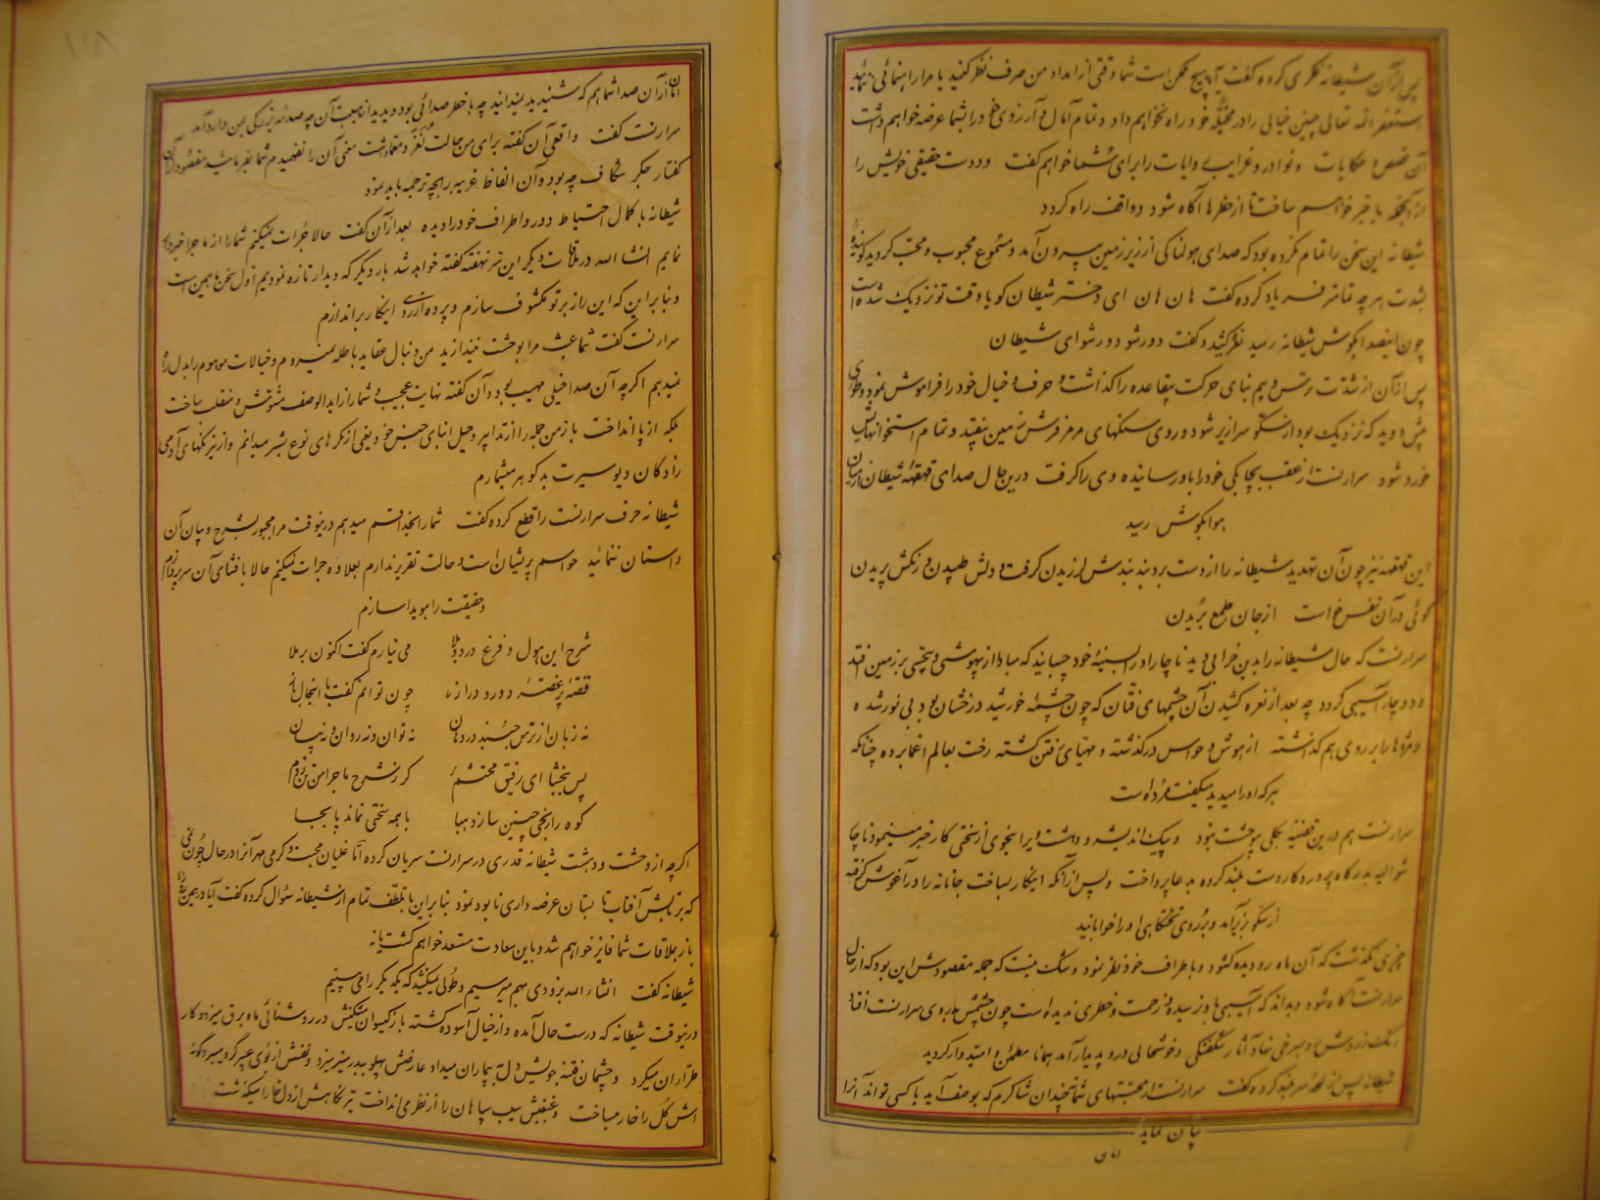 پس از آن شیطانه فکری کرده گفت آیا هیچ ممکن است شما وقتی از امداد من صرف نظر کنید یا مرا راهنمائی نمائید
استغفر الله تعالی چنین خیالی را در مخیله خود راه نخواهم داد و تمام آمال و آرزوی خود را بشما عرضه خواهم داشت
آن قصص و حکایات و نوادر و غرایب روایات را برای شما خواهم گفت و دوست حقیقی خویش را
از آنجمله باخبر خواهم ساخت تا از خطرها آگاه شود و واقف راه گردد
شیطانه این سخن را تمام نکرده بود که صدای هولناکی از زیر زمین بیرون آمد و مسموع محبوب و محب گردید گوینده
بشدت هر چه تمامتر فریاد کرده گفت هان هان ای دختر شیطان گویا وقت تو نزدیک شده است
چون این صدا بگوش شیطانه رسید نعره کشید و گفت دور شو دور شو ای شیطان
پس از آن از شدت ترس و بیم بنای حرکت بیقاعده را گذاشت و حرف و خیال خود را فراموش نمود و طوری
پیش دوید که نزدیک بود از سکو سرازیر شود و روی سنگهای مرمر فرش زمین بیفتد و تمام استخوانهایش
خورد شود سرارنست از عقب بچابکی خود را باو رسانیده وی را گرفت درین حال صدای قهقهه شیطان از میان
هوا بگوش رسید
این قهقهه نیز چون آن تهدید شیطانه را از دست برد بند بندش لرزیدن گرفت و دلش طپیدن و رنگش پریدن
گوئی در آن نفس خواست از جان طمع بریدن
سرارنست که حال شیطانه را بدین خرابی دید ناچار او را بسینه خود چسبانید که مبادا از بیهوشی و بیحسی بر زمین افتد
و دوچار آسیبی گردد چه بعد از نعره کشیدن آن چشمهای فتان که چون چشمه خورشید درخشان بود بی نور شده
و مژه‌ها را بر روی هم گذاشته از هوش و حواس درگذشته و مهیای رفتن گشته رخت بعالم اغما برده چنانکه
هر که او را میدید میگفت مرده است
سرارنست هم درین قضیه بکلی بیوحشت نبود و پیک اندیشه و دهشت ویرا بنحوی از سختی کار خبر مینمود ناچار
شوالیه بدرگاه پروردگار دست بلند کرده بدعا پرداخت و پس از آنکه اینکار بساخت جانانه را در آغوش گرفته
از سکو بزیر آمد و بر روی تختگاهی او را خوابانید
چیزی نگذشت که آن ماه رو دیده گشود و باطراف خود نظر نمود و شک نیست که جمله مقصودش این بود که از حال
سرارنست آگاه شود و بداند که آسیبی باو نرسیده و زحمت و خطری ندیده است چون چشمش بروی سرارنست افتاد
رنگ زردش رو بسرخی نهاد آثار شگفتگی و خوشحالی در او پدیدار آمد همانا مطمئن و امیدوار گردید
شیطانه پس از لمحه سر بلند کرده گفت سرارنست از محبتهای شما نچندان شاکرم که بوصف آید یا کسی تواند آنرا
بیان نماید
امان
۱۱۸
امّا از آن صدا شما هم که شنیدید نمیدانید چه باخطر صدائی بود و دیدید از مهیب آن چه صدمه بزرگی بمن وارد آمد
سرارنست گفت واقعی آن گفته برای من حالت لغز و معما داشت معنی آن را نفهمیدم شما بفرمائید مقصود از آن
گفتار جگر شکاف چه بود و آن الفاظ غریبه را بچه ترجمه باید نمود
شیطانه با کمال احتیاط دور و اطراف خود را دیده بعد از آن گفت حالا جرات نمیکنم شما را از ماجرا خبردار
نمایم انشا الله در ملاقات دیگر این سرّ نهفته گفته خواهد شد بار دیگر که دیدار تازه نمودیم اول سخن ما همین است
و بنا بر این که این راز بر تو مکشوف سازم و پرده از روی اینکار براندازم
سرارنست گفت شما عبث مرا بوحشت نیندازید من دنبال عقاید باطله نمیروم و خیالات موهوم را بدل راه
نمیدهم اگرچه آن صدا خیلی مهیب بود و آن گفته نهایت عجیب و شما را زاید الوصف متوحش و منقلب ساخت
بلکه از پا انداخت باز من جمله را از تدابیر و حیل ابنای جنس خود یعنی از مکرهای نوع بشر میدانم و از نیرنگهای آدمی
زادگان دیو سیرت بدگوهر میشمارم
شیطانه حرف سرارنست را قطع کرده گفت شما را بخدا قسم میدهم درینوقت مرا مجبور بشرح و بیان آن
داستان ننمائید حواسم پریشان است و حالت تقریر ندارم بعلاوه جرات نمیکنم حالا بافشای آن سر پردازم
و حقیقت را هویدا سازم
شرح این هول و فزع درد و بلا می نیارم گفت اکنون برملا
قصه پر غصه دور و دراز چون توانم گفت با اینحال باز
نه زبان از ترس جنبد در دهان نه توان و نه روان و نه بیان
پس ببخشا ای رفیق محتشم گر ز شرح ماجرا من تن زدم
کوه را رنجی چنین سازد هبا با همه سختی نماند پا بجا
اگرچه از وحشت و دهشت شیطانه قدری در سرارنست سریان کرده امّا غلیان محبت و گرمی مهر آنرا در حال چون یخی
که بتابش آفتاب تابستان عرضه داری نابود نمود بنا بر این با تلطف تمام از شیطانه سؤال کرده گفت آیا در همین زودی
باز بملاقات شما فایز خواهم شد و باین سعادت مستسعد خواهم گشت یا نه
شیطانه گفت انشاء الله بزودی بهم میرسیم و طولی نمیکشد که یکدیگر را می بینیم
درینوقت شیطانه که درست حال آمده و از خیال آسوده گشته باز گیسوان مشکینش در روشنائی ماه برق میزد و کار
طرّاران میکرد و چشمان فتنه جویش دل بیماران میداد عارضش پهلو ببدر منیر میزد و نفس از بوی عبیر گرو میبرد گونه
اش گل را خار میساخت و غبغبش سیب سپاهان را از نظر می انداخت تیر نگاهش از دل خارا میگذشت